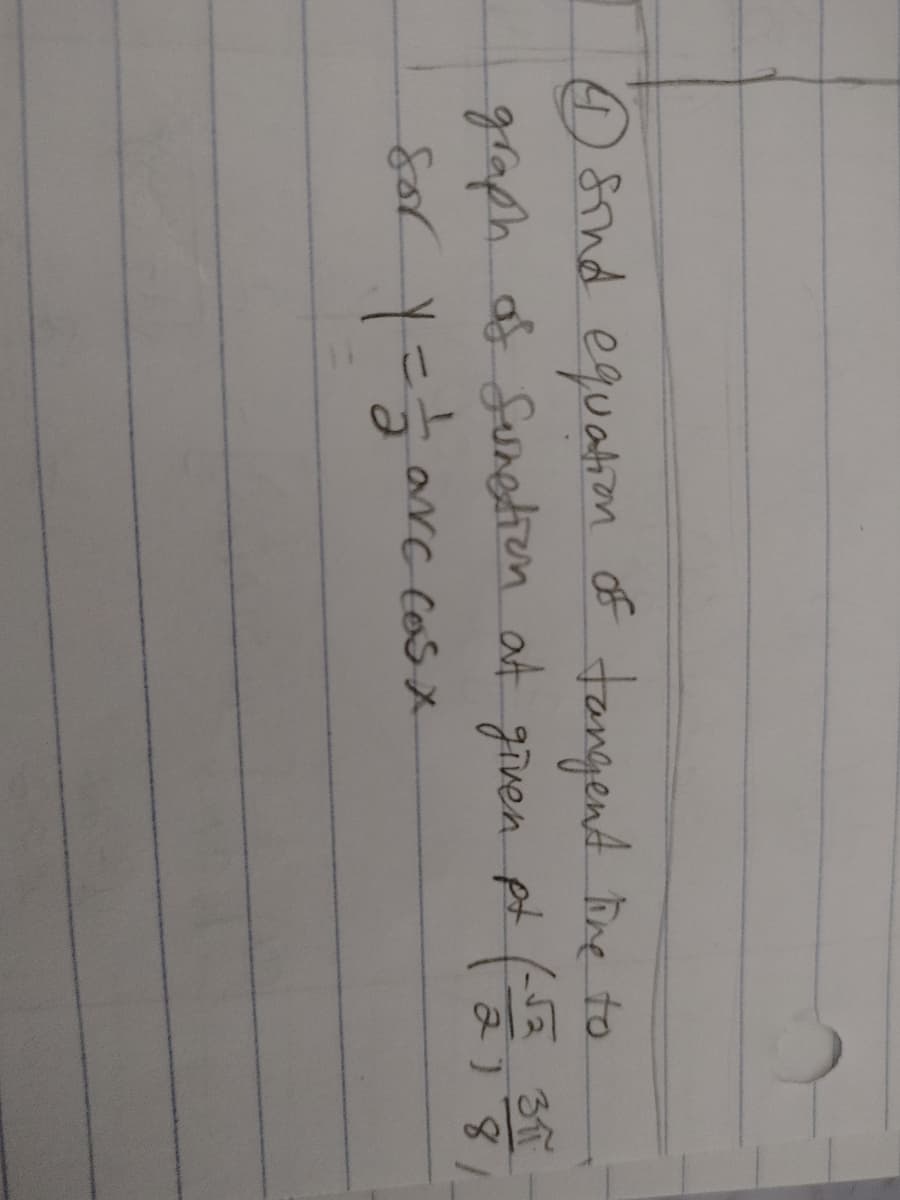 ④ find equation of tangent line to
graph of function at given pt (-√2/2, 3π/8)
for y = 1/2 arc cos x